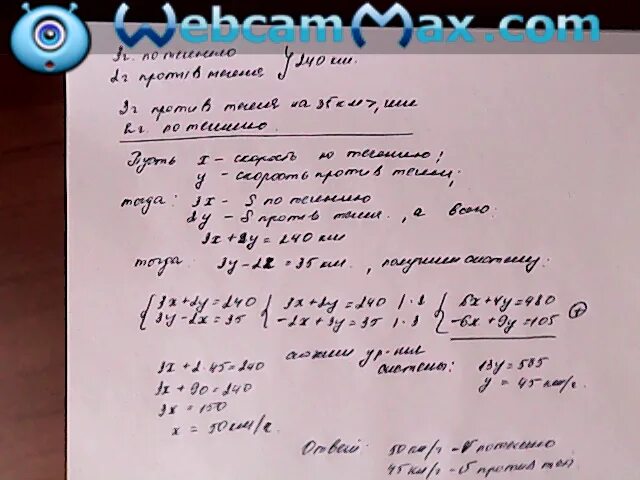 WebcamMax.com
3ч. по течению
2ч против течения } 240 км.
3ч против течения на 35 км >, чем
2ч. по течению.
Пусть x - скорость по течению;
y - скорость против течен;
тогда: 3x - S по течению
2y - S против течен , а всего:
3x + 2y = 240 км
тогда 3y - 2x = 35 км , получим систему:
{ 3x + 2y = 240 { 3x + 2y = 240 | · 2 { 6x + 4y = 480
3y - 2x = 35 -2x + 3y = 35 | · 3 -6x + 9y = 105 (+)
сложим ур-ния
системы: 13y = 585
y = 45 км/ч.
3x + 2 · 45 = 240
3x + 90 = 240
3x = 150
x = 50 км/ч.
Ответ: 50 км/ч - V по течению
45 км/ч - V против теч